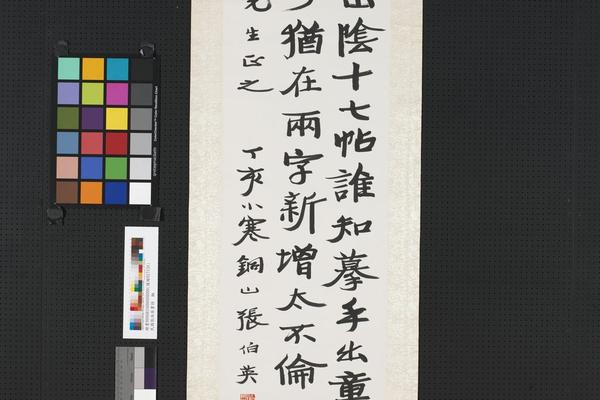 山陰十七帖誰知摹手出童
猶在兩字新增太不倫
先生正之 丁亥小寒銅山張伯英